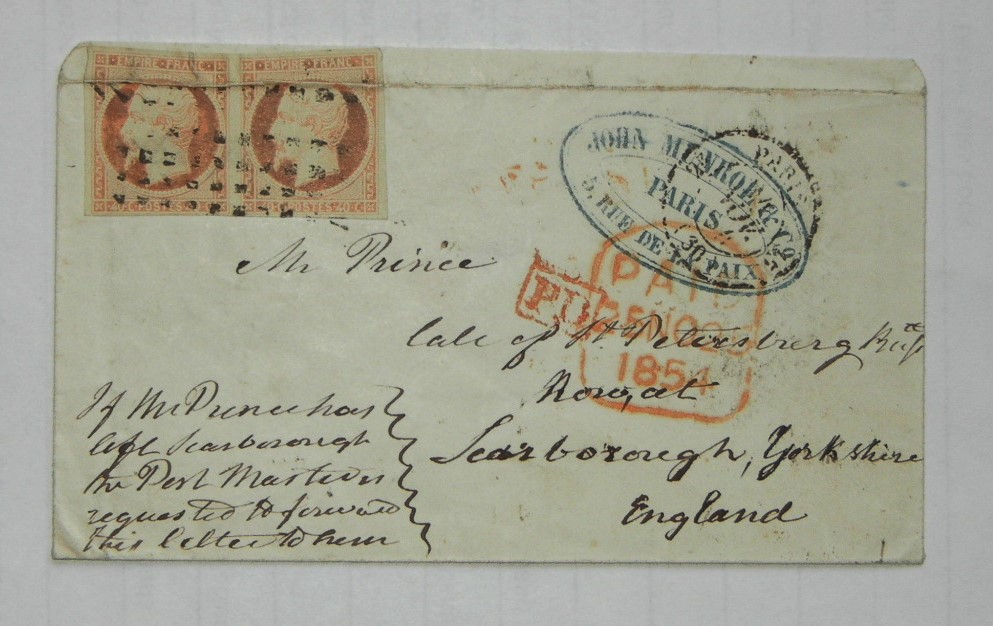 EMPIRE FRANC EMPIRE FRANC
40 C POSTES 40 C 40 C POSTES 40 C
JOHN MUNROE & Co
PARIS
5, RUE DE LA PAIX
PARIS
Mr Prince
PD
PAID
25 NO 25
1854
late of St Petersburg
now, at
Scarborough, Yorkshire
England
If Mr Prince has
left Scarborough
the Post Master is
requested to forward
this letter to him